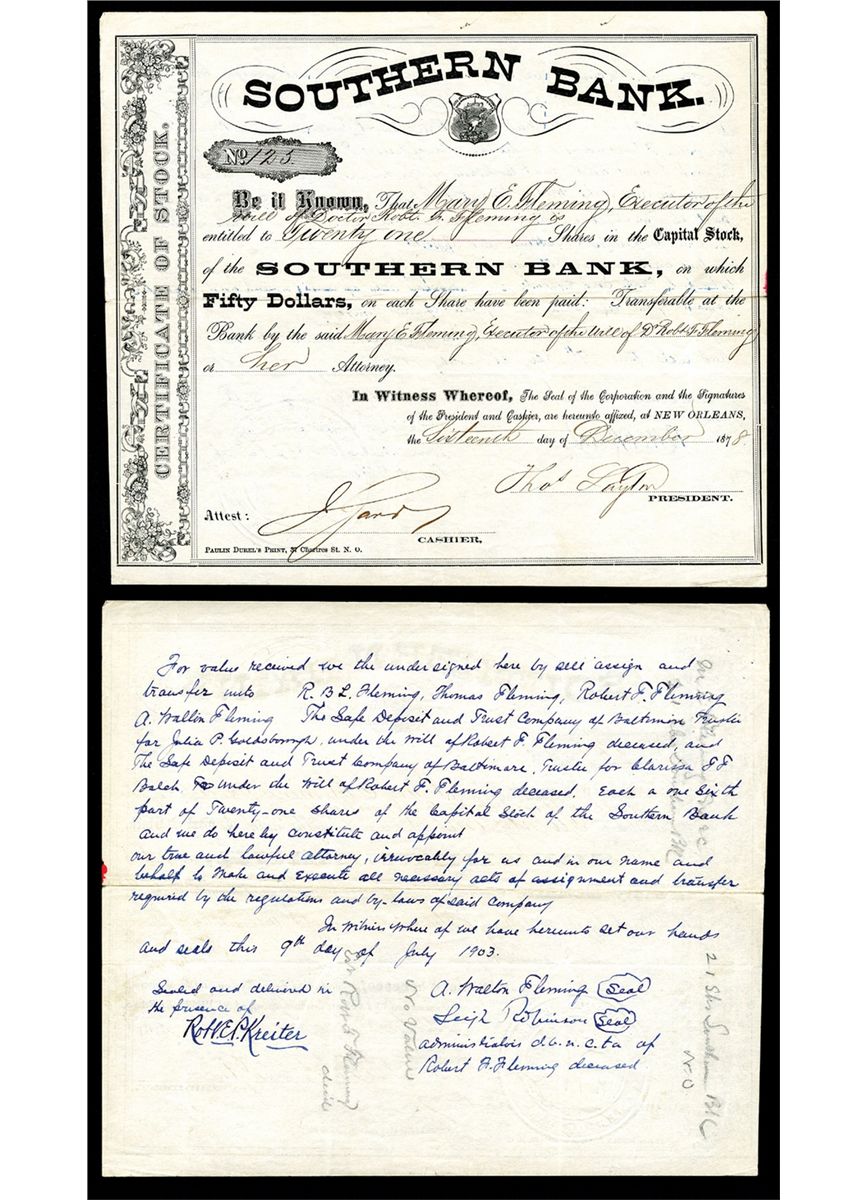 SOUTHERN BANK.
CERTIFICATE OF STOCK.
No. 125.
Be it Known, That Mary E. Fleming, Executor of the
will of Doctor Robt. F. Fleming is
entitled to Twenty one Shares in the Capital Stock,
of the SOUTHERN BANK, on which
Fifty Dollars, on each Share have been paid: Transferable at the
Bank by the said Mary E Fleming, Executor of the Will of Dr Robt F Fleming
or her Attorney.
In Witness Whereof, The Seal of the Corporation and the Signatures
of the President and Cashier, are hereunto affixed, at NEW ORLEANS,
the Sixteenth day of December 1878.
Thos Layton
PRESIDENT.
Attest:
CASHIER.
PAULIN DUREL'S PRINT, 37 Chartres St. N. O.
For value received we the undersigned here by sell assign and
transfer unto R. B L. Fleming, Thomas Fleming, Robert F. Fleming
A. Wallin Fleming The Safe Deposit and Trust Company of Baltimore Trustee
for Julia P. Goldsborough, under the will of Robert F. Fleming deceased, and
The Safe Deposit and Trust Company of Baltimore, Trustee for Clarissa F F
Balch under the will of Robert F. Fleming deceased. Each a one Sixth
part of Twenty-one shares of the Capital Stock of the Southern Bank
and we do here by constitute and appoint
our true and lawful attorney, irrevocably for us and in our name and
behalf to make and execute all necessary acts of assignment and transfer
required by the regulations and by-laws of said company
In witness where of we have hereunto set our hands
and seals this 9th day of July 1903.
Sealed and delivered in
the presence of
Robt. E. P. Kreiter
A. Walton Fleming Seal
Leigh Robinson Seal
administrators d.b.n.c.t.a of
Robert F. Fleming deceased
No Value
Est Robt F Fleming
decd
21 Shs Southern Bk
N.O